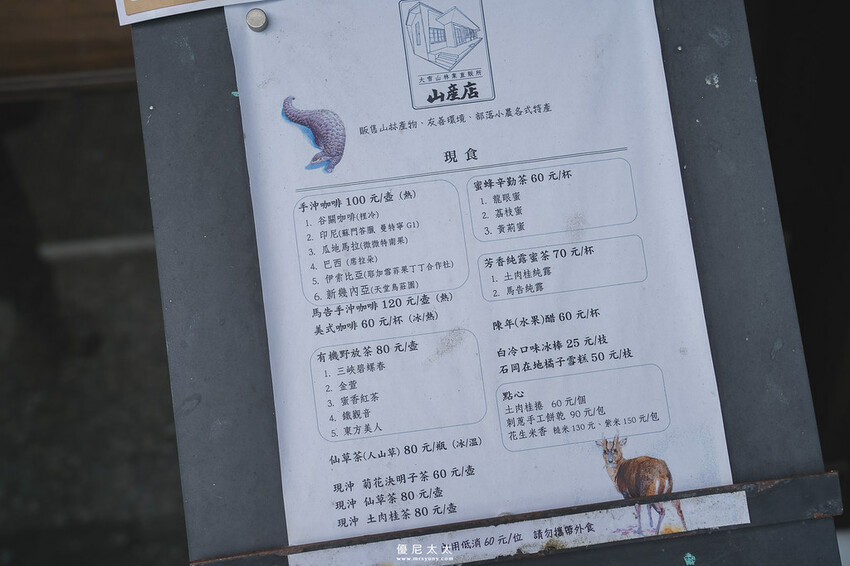 大雪山林業直販所
山産店
販售山林產物・友善環境・部落小農各式特產
現食
手沖咖啡 100 元/壺 (熱)
1. 谷關咖啡(裡冷)
2. 印尼(蘇門答臘 曼特寧 G1)
3. 瓜地馬拉(微微特南果)
4. 巴西 (席拉朵)
5. 伊索比亞(耶加雪菲果丁丁合作社)
6. 新幾內亞(天堂鳥莊園)
馬告手沖咖啡 120 元/壺 (熱)
美式咖啡 60 元/杯 (冰/熱)
有機野放茶 80 元/壺
1. 三峽碧螺春
2. 金萱
3. 蜜香紅茶
4. 鐵觀音
5. 東方美人
仙草茶(人山草) 80 元/瓶 (冰/溫)
現沖 菊花決明子茶 60 元/壺
現沖 仙草茶 80 元/壺
現沖 土肉桂茶 80 元/壺
蜜蜂辛勤茶 60 元/杯
1. 龍眼蜜
2. 荔枝蜜
3. 黃荊蜜
芳香純露蜜茶 70 元/杯
1. 土肉桂純露
2. 馬告純露
陳年(水果)醋 60 元/杯
白冷口味冰棒 25 元/枝
石岡在地橘子雪糕 50 元/枝
點心
土肉桂捲 60 元/個
刺蔥手工餅乾 90 元/包
花生米香 糙米 130 元、紫米 150 元/包
用低消 60 元/位 請勿攜帶外食
優尼太太
www.mrsyuny.com